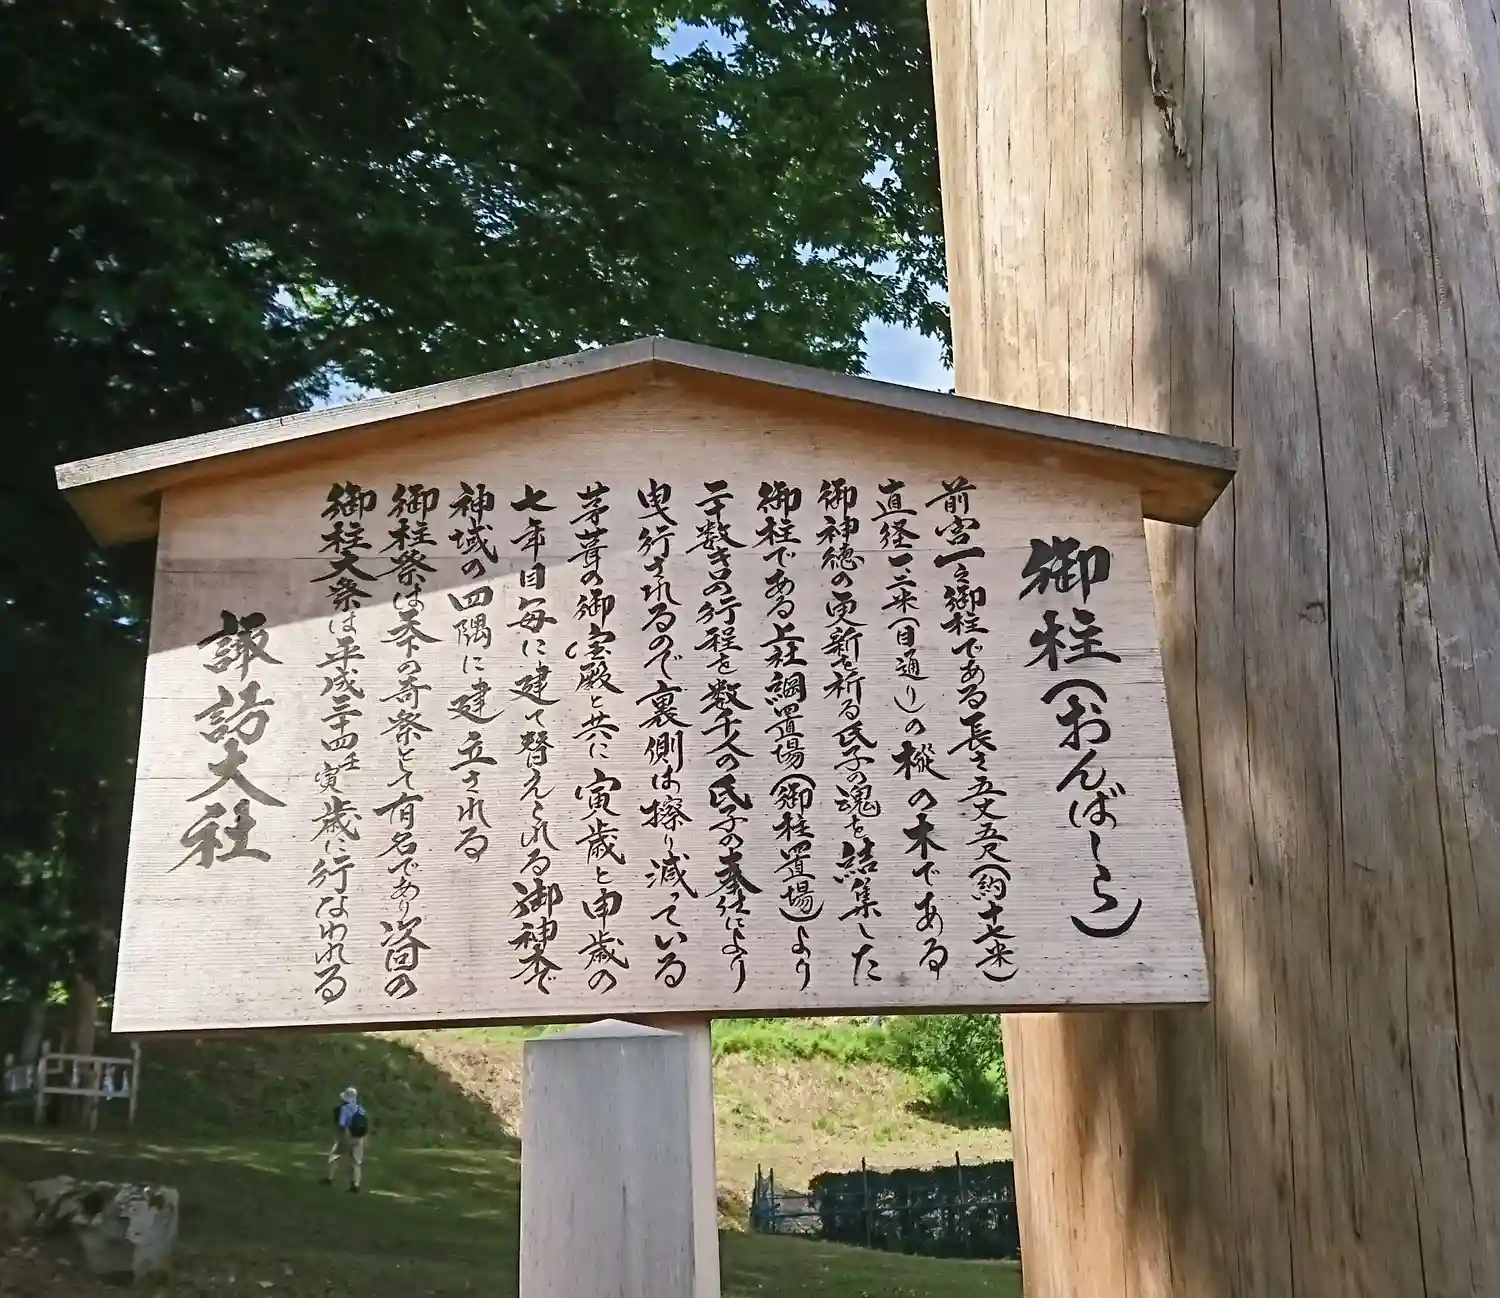 御柱(おんばしら)
前宮一之御柱である長さ五丈五尺(約十七米)
直径一二米(目通り)の樅の木である
御神徳の更新を祈る氏子の魂を結集した
御柱である上社綱置場(御柱置場)より
二十数キロの行程を数千人の氏子の奉仕により
曳行されるので裏側は擦り減っている
茅葺の御宝殿と共に寅歳と申歳の
七年目毎に建て替えられる御神木で
神域の四隅に建立される
御柱祭は天下の奇祭として有名であり次回の
御柱大祭は平成三十四壬寅歳に行なわれる
諏訪大社